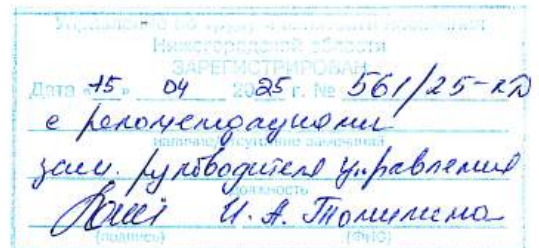 Управление по труду и занятости населения
Нижегородской области
ЗАРЕГИСТРИРОВАН
Дата «15» 04 2025 г. № 561/25-КД
с рекомендациями
наличие/отсутствие замечаний
зам. руководителя управления
должность
И. А. Толмилина
(подпись) (ФИО)